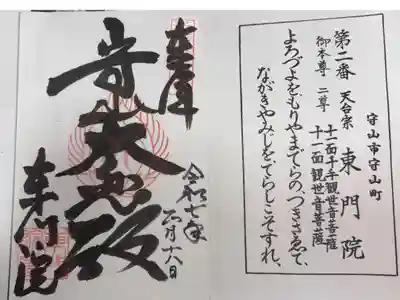 守山市守山町
第二番 天台宗 東門院
御本尊 二尊 十一面千手観世音菩薩
十一面観世音菩薩
よろづよをもりやまでらのつきさゑで、
ながきやみしをてらしこそすれ、
奉拝
令和七年
六月十八日
東門院